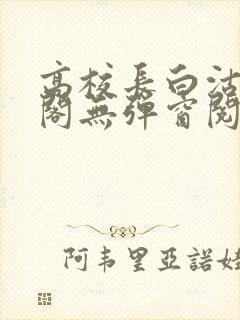 高校長白沽
閣無彈窗閱
阿韦里亞諾娃